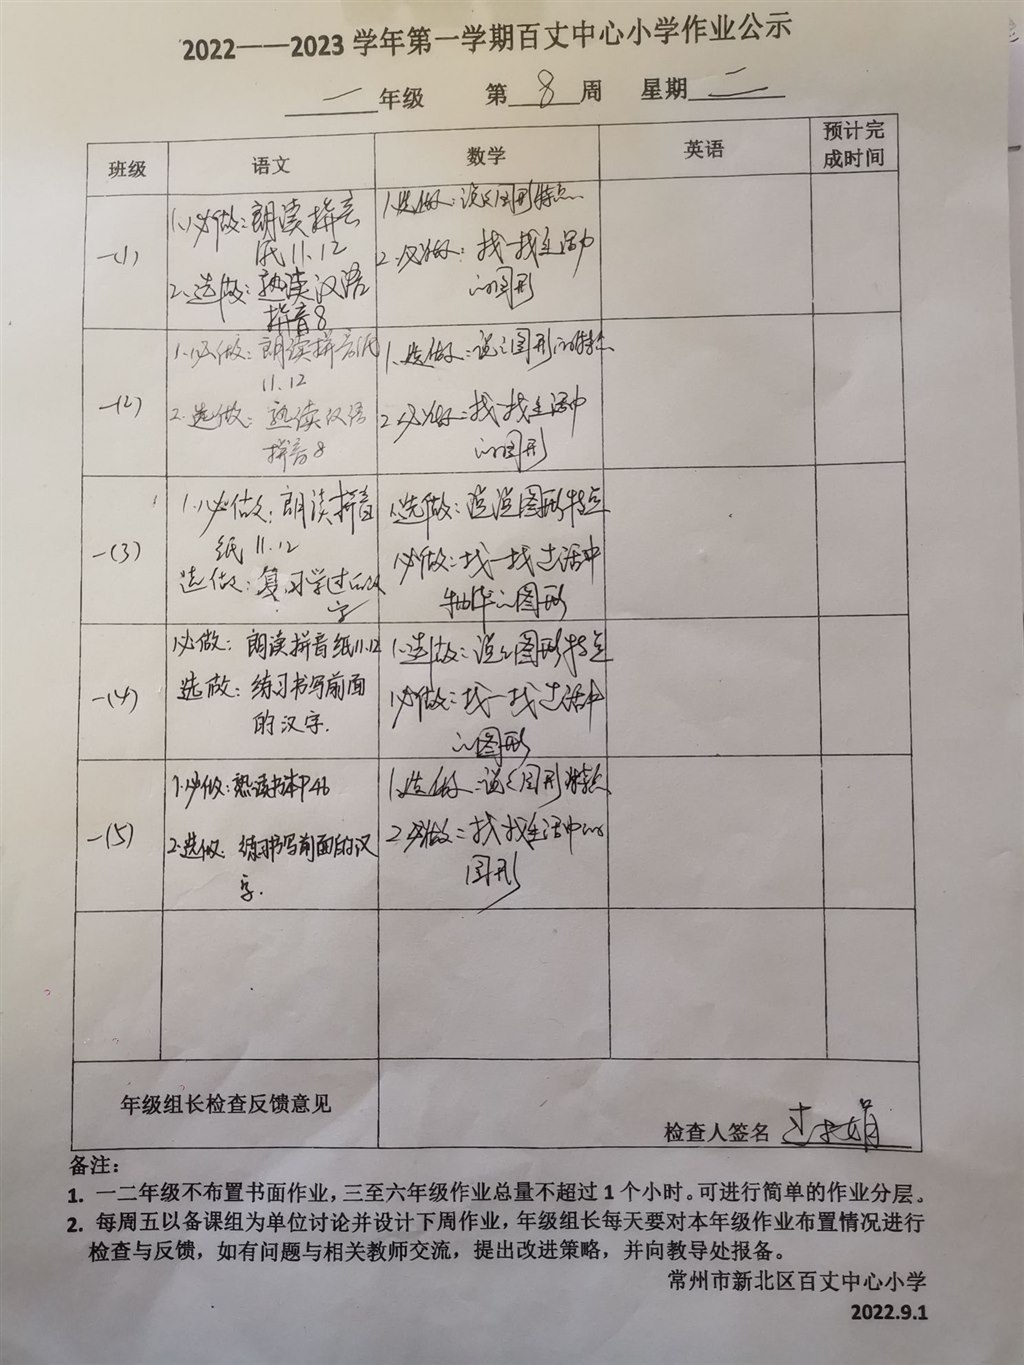 2022——2023 学年第一学期百丈中心小学作业公示
一 年级 第 8 周 星期 二
班级 语文 数学 英语 预计完
成时间
一(1)
1.必做：朗读拼音
纸11.12
2.选做：熟读汉语
拼音8
1.选做：说说图形特点
2.必做：找一找生活中
的图形
一(2)
1.必做：朗读拼音纸
11.12
2.选做：熟读汉语
拼音8
1.选做：说说图形的特点
2.必做：找一找生活中
的图形
一(3)
1.必做：朗读拼音
纸11.12
选做：复习学过的汉
字
选做：说说图形特点
必做：找一找生活中
的图形
一(4)
必做：朗读拼音纸11.12
选做：练习书写前面
的汉字.
1.选做：说说图形特点
必做：找一找生活中
的图形
一(5)
1.必做：熟读书本P46
2.选做：练习书写前面的汉
字.
1.选做：说说图形特点
2.必做：找找生活中的
图形
年级组长检查反馈意见
检查人签名
备注：
1. 一二年级不布置书面作业，三至六年级作业总量不超过 1 个小时。可进行简单的作业分层。
2. 每周五以备课组为单位讨论并设计下周作业，年级组长每天要对本年级作业布置情况进行
检查与反馈，如有问题与相关教师交流，提出改进策略，并向教导处报备。
常州市新北区百丈中心小学
2022.9.1